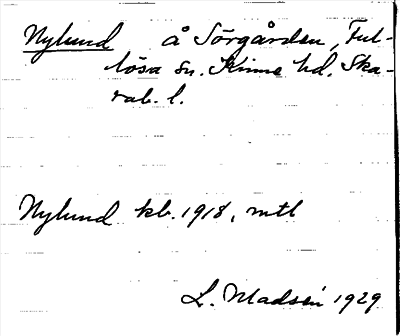 Nylund å Sörgården, Ful-
lösa sn. Kinne hd. Ska-
rab. l.
Nylund kb. 1918, mtl
L. Madsén 1929